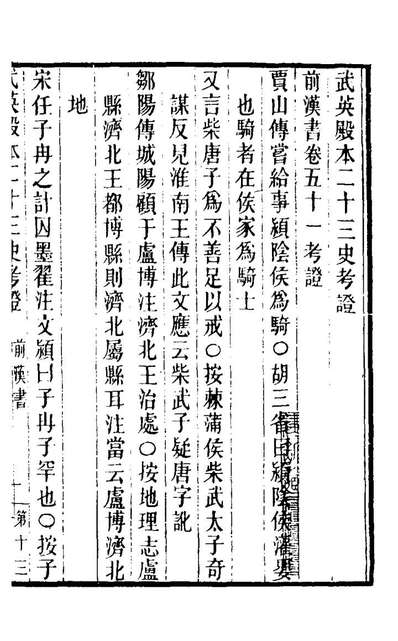 武英殿本二十三史考證
前漢書卷五十一考證
賈山傳嘗給事潁陰侯為騎○胡三省曰潁陰侯灌嬰
也騎者在侯家為騎士
又言柴唐子為不善足以戒○按棘蒲侯柴武太子奇
謀反見淮南王傳此文應云柴武子疑唐字訛
鄒陽傳城陽顧于盧博注濟北王治處○按地理志盧
縣濟北王都博縣則濟北屬縣耳注當云盧博濟北
地
宋任子冉之計囚墨翟注文潁曰子冉子罕也○按子
武英殿本二十三史考證
前漢書
第十三